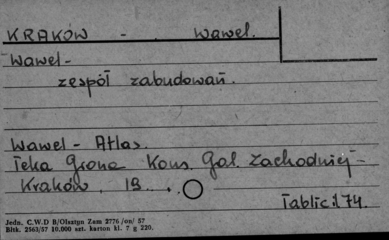 KRAKÓW - . Wawel.
Wawel-
zespół zabudowań.
Wawel - Atlas.
Teka Grona Kons. Gal. Zachodniej-
Kraków, 19...
Tablic: 174.
Jedn. C.W.D B/Olsztyn Zam 2776/on/ 57
Bltk. 2563/57 10.000 szt. karton kl. 7 g 220.